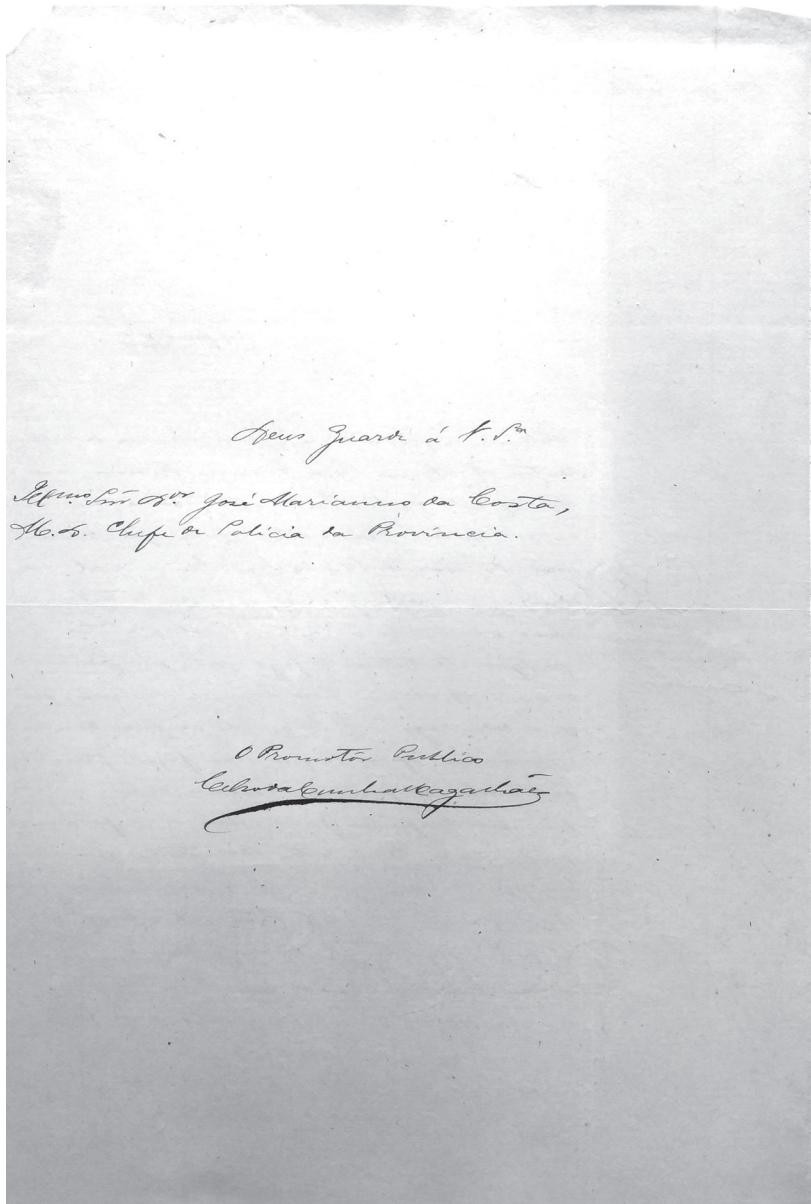 Deus Guarde á V. S.ª
Illmo. Snr. Dr. José Marianno da Costa,
M. D. Chefe de Policia da Provincia.
O Promotôr Publico
Celso da Cunha Magalhães